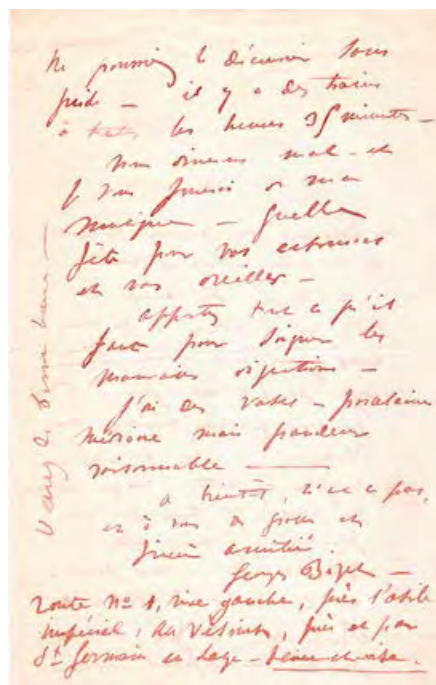 ne pourriez le découvrir sans
guide — il y a des trains
à toutes les heures 35 minutes —
nous dinerons mal — et
je vous jouerai de ma
musique — Quelle
fête pour vos estomacs
et vos oreilles —
apportez tout ce qu'il
faut pour soigner les
mauvaises digestions —
j'ai des vases — porcelaine
médiocre mais grandeur
raisonnable —
à bientôt, n'est-ce pas,
et à vous de grosse et
sincère amitié
Georges Bizet —
route no 1, rive gauche, près l'asile
impérial, du Vésinet, près et par
St Germain en Laye — Seine-et-oise.
Venez de bonne heure —